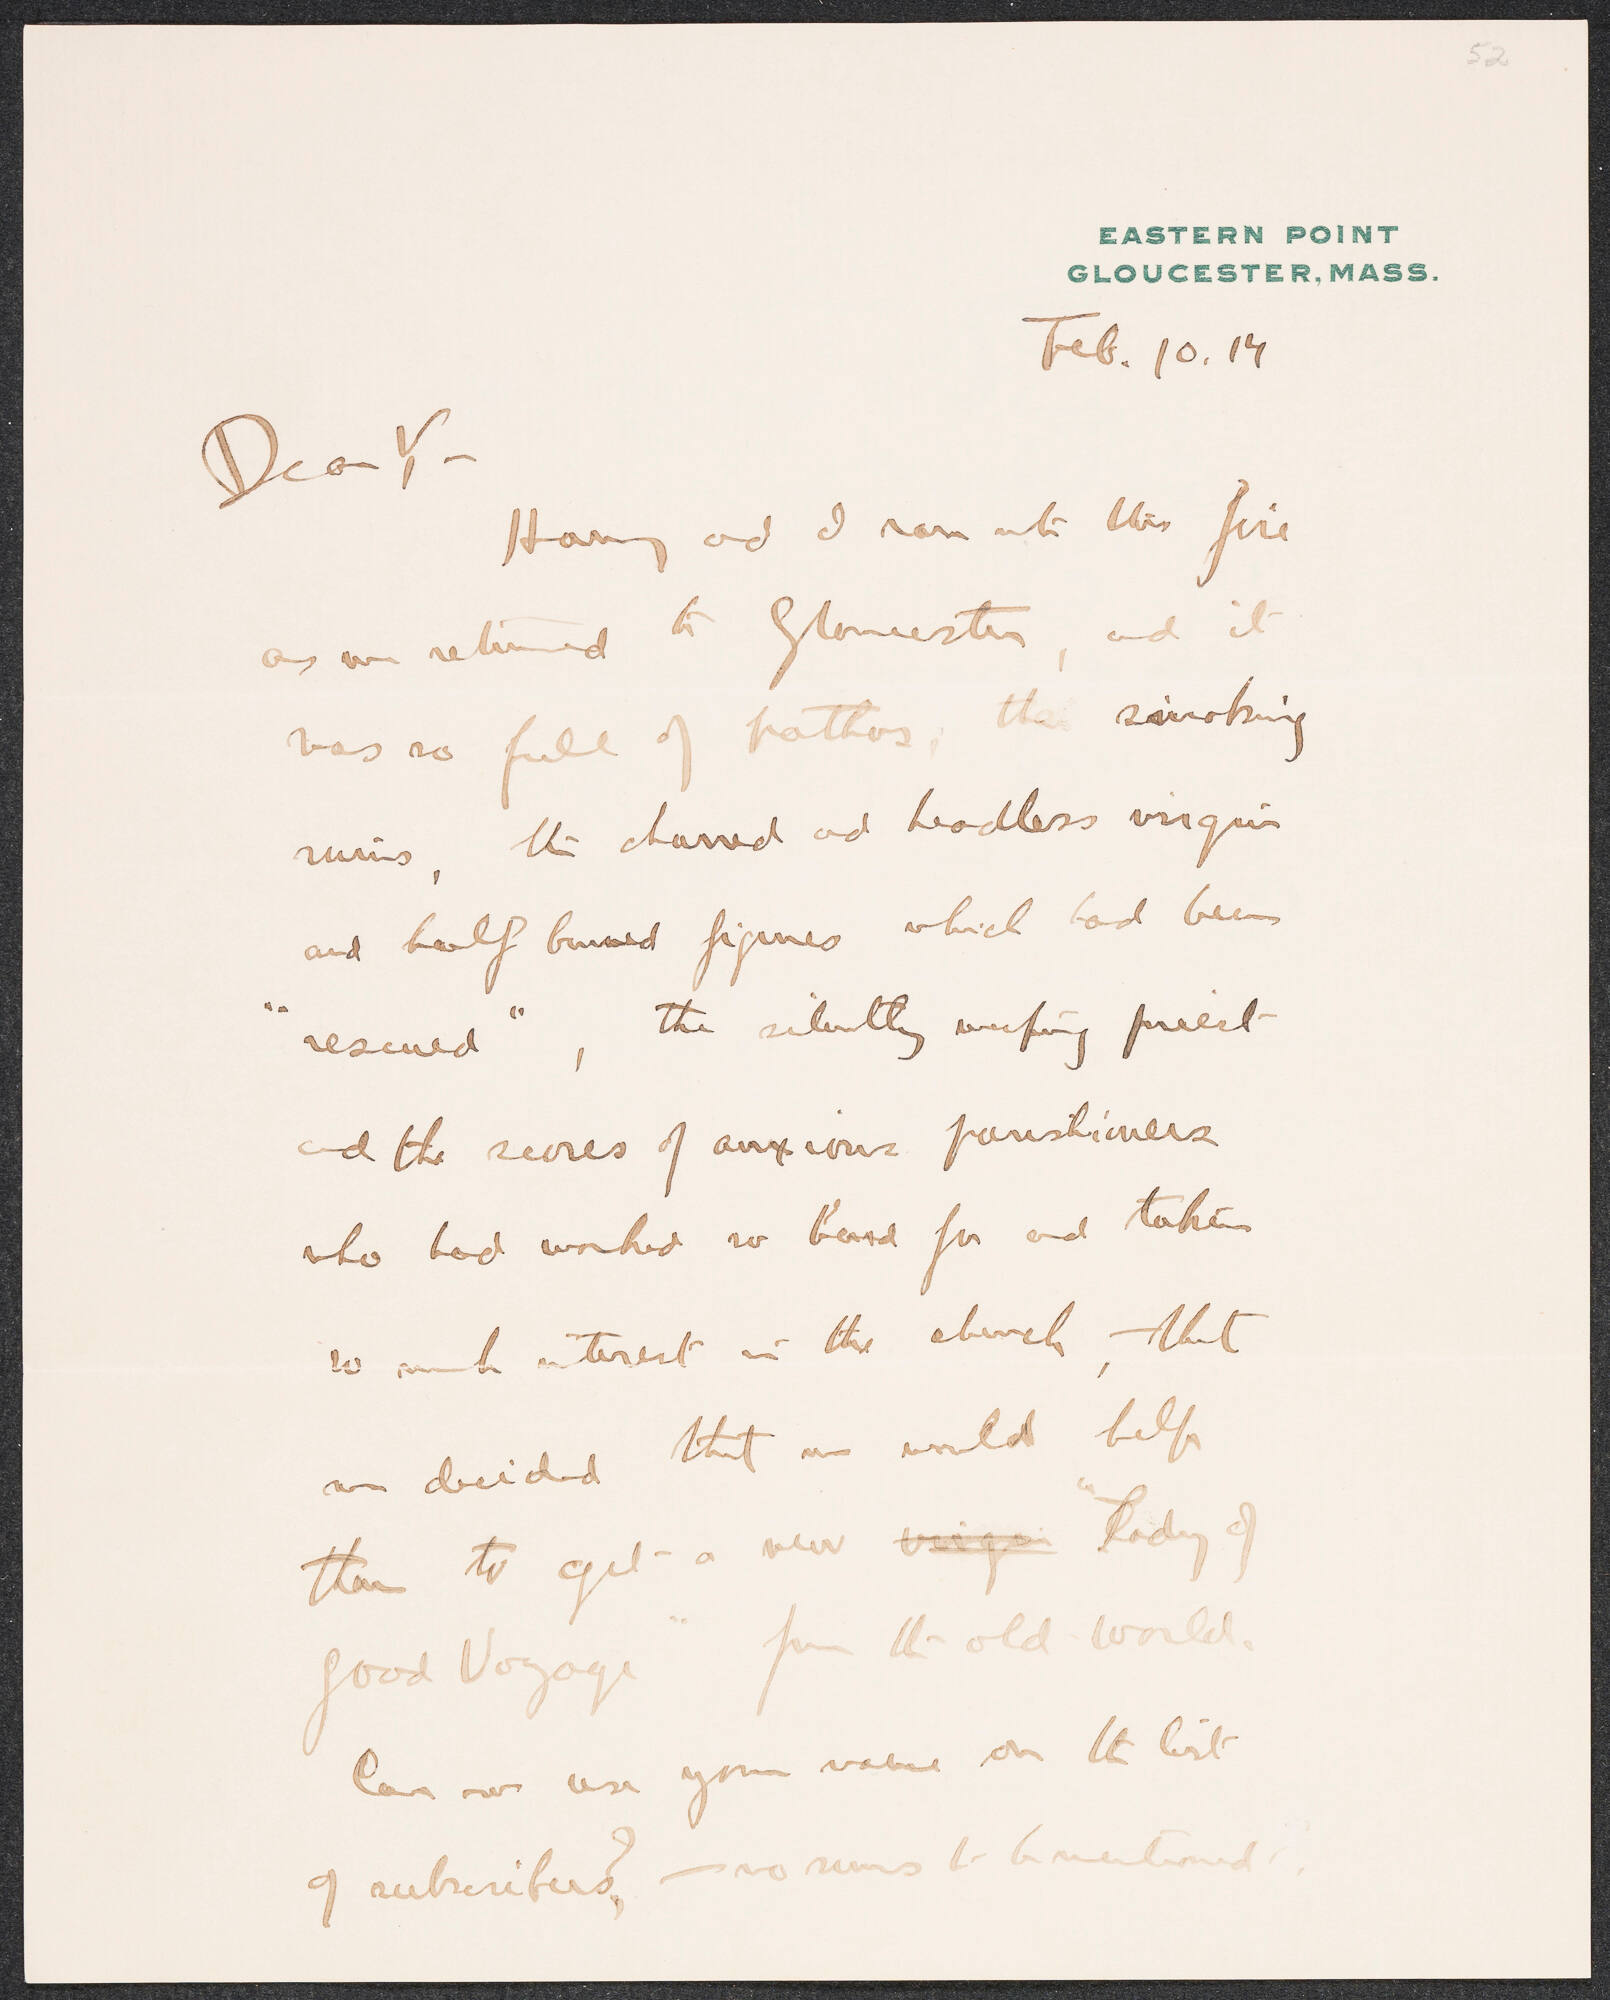 52
EASTERN POINT
GLOUCESTER, MASS.
Feb. 10. 14
Dear Y-
Harry and I ran into this fire
as we returned to Gloucester, and it
was so full of pathos, the smoking
ruins, the charred and headless virgin
and half burned figures which had been
"rescued", the silently weeping priest
and the scores of anxious parishioners
who had worked so hard for and taken
so much interest in the church, - that
we decided that we would help
them to get a new virgin "Lady of
Good Voyage" from the old world.
Can we use your name on the list
of subscribers?, - no sums to be mentioned.